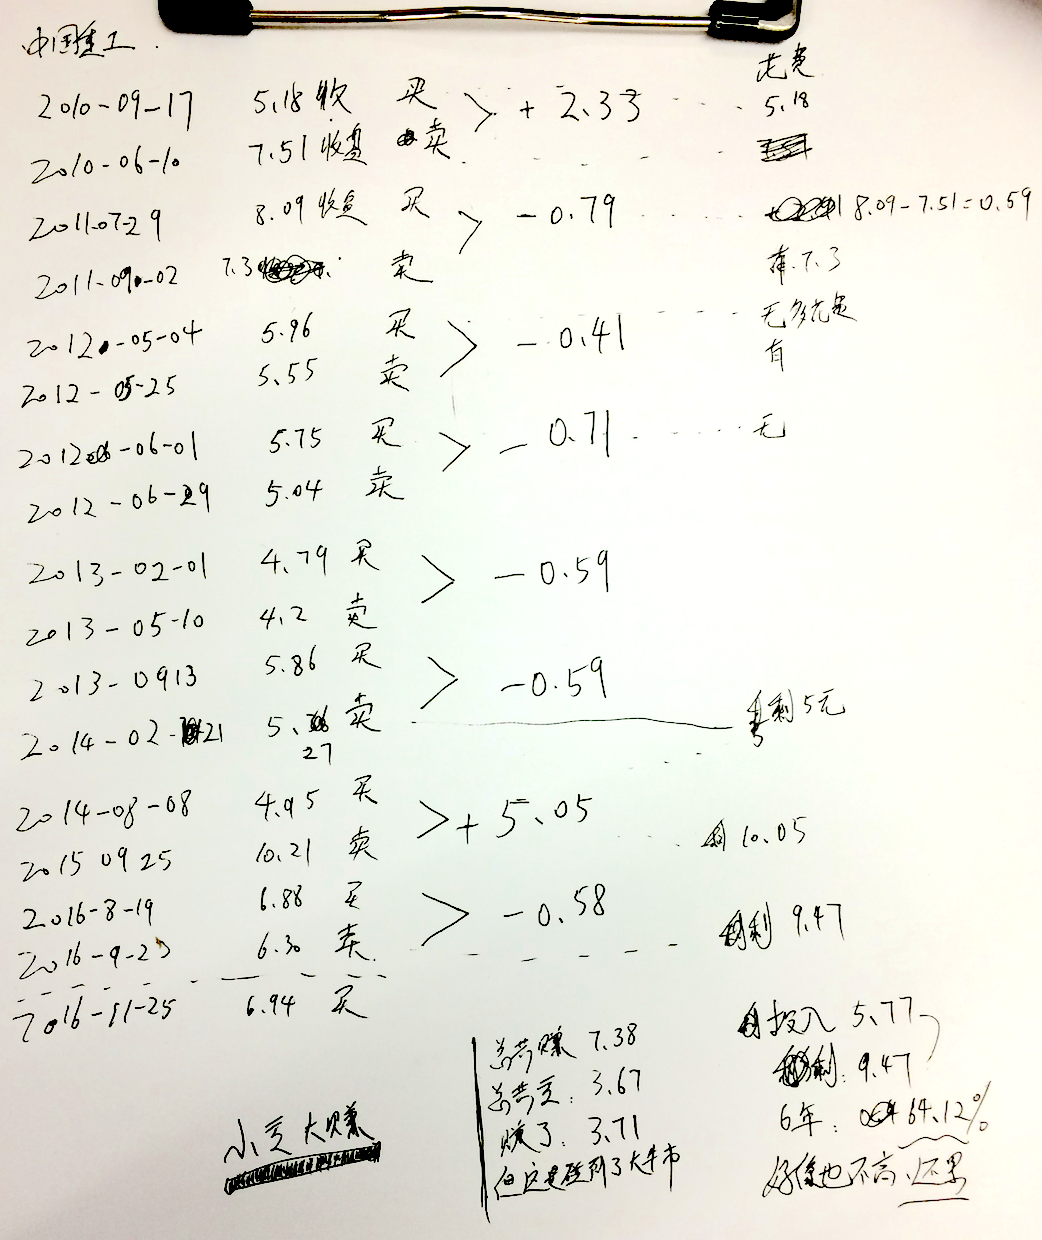 中国重工
花费
2010-09-17 5.18 收 买 > + 2.33 5.18
2010-06-10 7.51 收盘 卖
2011-07-29 8.09 收盘 买 > - 0.79 8.09-7.51=0.59
2011-09-02 7.3 卖 7.3
2012-05-04 5.96 买 > - 0.41 无
2012-05-25 5.55 卖 有
2012-06-01 5.75 买 > - 0.71 无
2012-06-29 5.04 卖
2013-02-01 4.79 买 > - 0.59
2013-05-10 4.2 卖
2013-0913 5.86 买 > -0.59
2014-02-21 5.27 卖 剩5元
2014-08-08 4.95 买 > + 5.05
2015 09 25 10.21 卖 10.05
2016-8-19 6.88 买 > -0.58
2016-9-23 6.30 卖 剩 9.47
2016-11-25 6.94 买
总共赚 7.38
总共亏: 3.67
赚了: 3.71
但这是碰到了大牛市
投入 5.77
剩: 9.47
6年: 64.12%
好像也不高,还累
小亏大赚